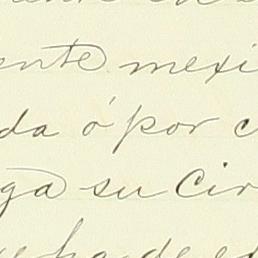 ente mexi
da ó por c
ga su Cir
ha de